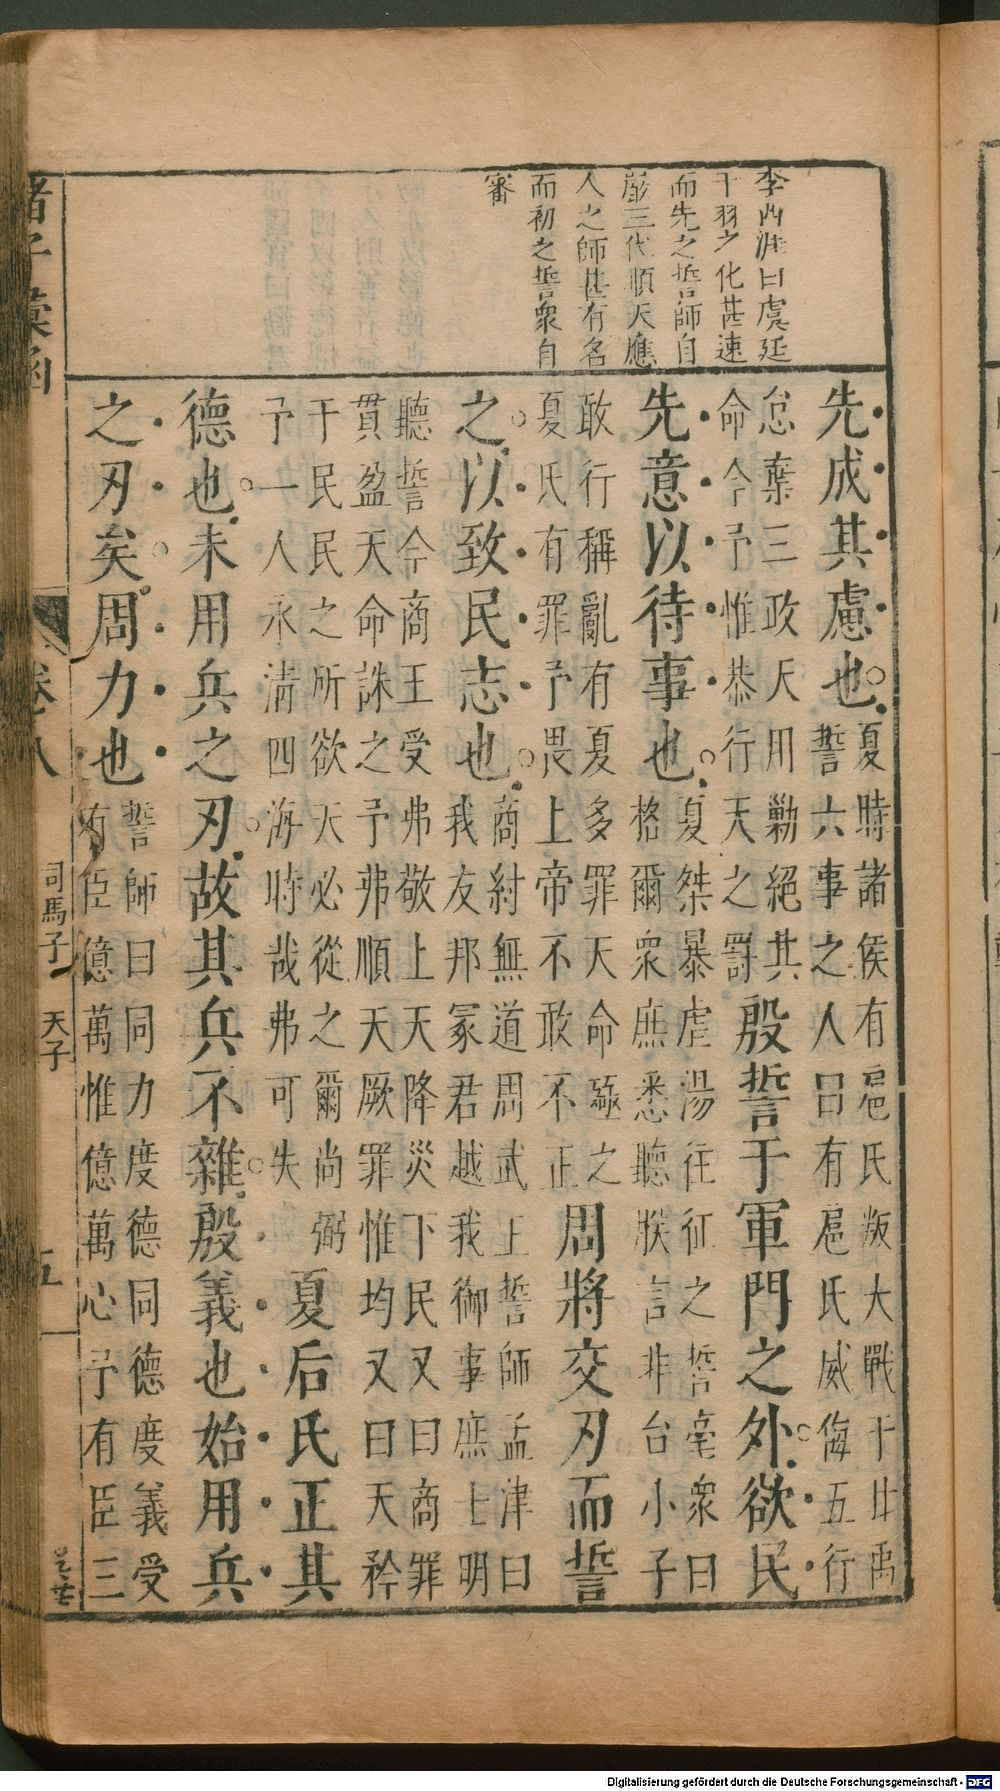 李西涯曰虞廷
干羽之化甚速
而先之誓師自
嚴三代順天應
人之師甚有名
而初之誓衆自
審
先成其慮也夏時諸侯有扈氏叛大戰于甘禹
誓六事之人曰有扈氏威侮五行
怠棄三政天用勦絕其
命今予惟恭行天之罰殷誓于軍門之外欲民
先意以待事也夏桀暴虐湯往征之誓亳衆曰
格爾衆庶悉聽朕言非台小子
敢行稱亂有夏多罪天命殛之
夏氏有罪予畏上帝不敢不正周將交刃而誓
之以致民志也商紂無道周武王誓師孟津曰
我友邦冢君越我御事庶士明
聽誓今商王受弗敬上天降災下民又曰商罪
貫盈天命誅之予弗順天厥罪惟均又曰天矜
于民民之所欲天必從之爾尚弼
予一人永清四海時哉弗可失夏后氏正其
德也未用兵之刃故其兵不雜殷義也始用兵
之刃矣周力也誓師曰同力度德同德度義受
有臣億萬惟億萬心予有臣三
諸子彙函
卷八
司馬子 天子
五